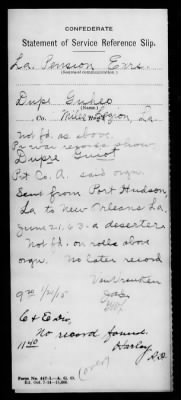 CONFEDERATE
Statement of Service Reference Slip.
La. Pension Exrs.
(Source of communication.)
Dupe
(Name.)
Co. Miles Legion, La
Not fd. as above.
Pris. war records show
Dupre Guiot
Pvt Co. A. said orgn.
Sent from Port Hudson,
La to New Orleans La.
June 21, 63. a deserter
Not fd. on rolls above
orgn. No later record
C & E Div.
No record found.
1140 Harley
(over)
Form No. 447-1—A. G. O.
Ed. Oct. 7-14—15,000.